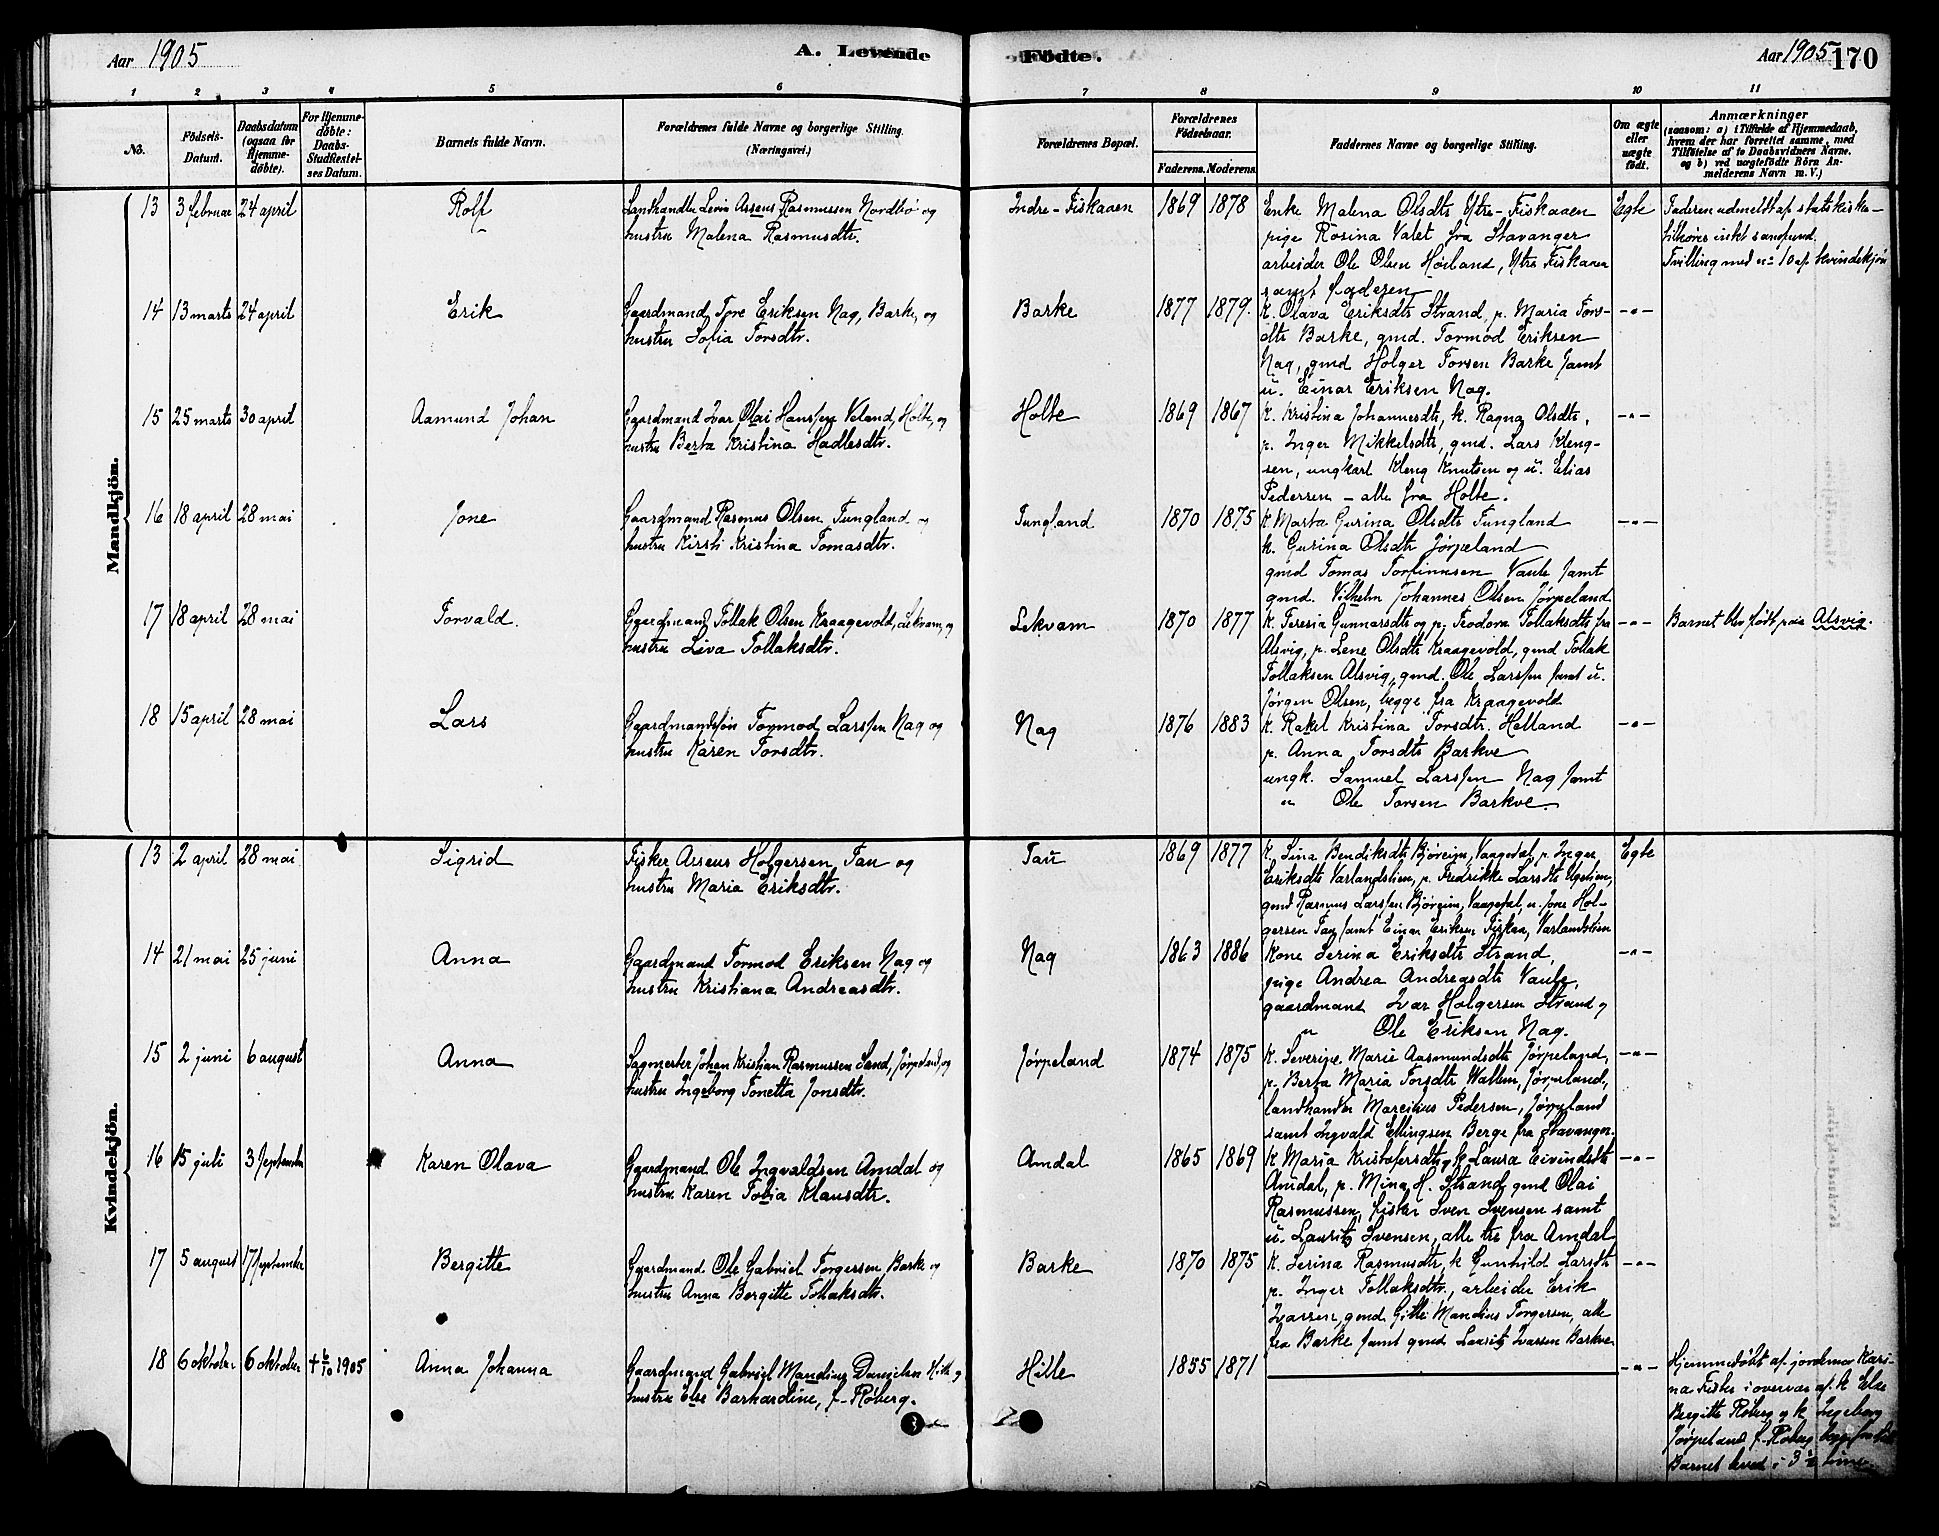 Aar 1905
A. Levende
Födte.
Aar 1905
170
1 2 3 4 5 6 7 8 9 10 11
No.
Födsels-
Datum.
Daabsdatum
(ogsaa for
Hjemme-
döbte).
For Hjemme-
döbte:
Daabs-
Stadfæstel-
ses Datum.
Barnets fulde Navn.
Forældrenes fulde Navne og borgerlige Stilling.
(Næringsvei.)
Forældrenes Bopæl.
Forældrenes
Födselsaar.
Faderens. Moderens.
Faddernes Navne og borgerlige Stilling.
Om ægte
eller
uægte
födt.
Anmærkninger
(saasom: a) i Tilfælde af Hjemmedaab,
hvem der har forrettet samme, med
Tilföielse af to Daabsvidners Navne.
og b) ved uægtefödte Börn An-
melderens Navn m. V.)
Mandkjön.
13 3 februar 24 april Rolf
Landhandler Assens Rasmussen Nordbø og
hustru Malena Rasmusdtr.
Indre-Fiskaaen 1869 1878
Enke Malena Olsdtr Ytre-Fiskaaen
pige Rosina Valet fra Stavanger
arbeider Ole Olsen Høiland, Ytre Fiskaaen
samt faderen
Egte
Faderen udmeldt af statskirke-
Tvilling med no 10 af kvindekjøn
14 13 marts 24 april Erik
Gaardmand Tore Eriksen Nag, Barke, og
hustru Sofia Torsdtr.
Barke 1877 1879.
K. Olava Eriksdtr Strand, p. Maria Tors-
dtr Barke, gmd. Tormod Eriksen
Nag, gmd Holger Torsen Barke samt
u. Einar Eriksen Nag.
-"-
15 25 marts 30 april Aamund Johan
Gaardmand Ivar Olai Hanssen Veland, Holte, og
hustru Berta Kristina Hadlesdtr.
Holte 1869 1867
K. Kristina Johannesdtr, k. Ragna Olsdtr,
p. Inger Mikkelsdtr, gmd. Lars Kleng-
sen, ungkarl Kleng Knutsen og u. Elias
Pedersen - alle fra Holte.
-"-
16 18 april 28 mai Jone
Gaardmand Rasmus Olsen Tungland og
hustru Kirsti Kristina Tomasdtr.
Tungland 1870 1875
K. Marta Gurina Olsdtr Tungland
k. Gurina Olsdtr Jørpeland
gmd Tomas Torfinnsen Vaule samt
gmd. Vilhelm Johannes Olsen Jørpeland
-"-
17 18 april 28 mai Torvald.
Gaardmand Tollak Olsen Kraagevold, Lekvam, og
hustru Liva Tollaksdtr.
Lekvam 1870 1877
K. Teresia Gunnarsdtr og p. Teodora Tollaksdtr fra
Alsvig, p. Lene Olsdtr Kraagevold, gmd Tollak
Tollaksen Alsvig, gmd. Ole Larssen samt u.
Jørgen Olsen, begge fra Kraagevold
-"- Barnet blev født paa Alsvig.
18 15 april 28 mai Lars
Gaardmandssøn Tormod Larssen Nag og
hustru Karen Torsdtr.
Nag 1876 1883
K. Rakel Kristina Torsdtr. Helland
p. Anna Torsdtr Barkve
ungk. Samuel Larssen Nag samt
" Ole Torsen Barkve.
-"-
Kvindekjön.
13 2 april 28 mai Sigrid
Fisker Assens Holgersen Tau og
hustru Maria Eriksdtr.
Tau 1869 1877
K. Sina Bendiksdtr Bjøreim, Vaagedal, p. Inger
Eriksdtr Varlandslien, p. Fredrikke Larsdtr
gmd Rasmus Larssen Bjøreim, Vaagedal, u. Jone Hol-
gersen Tau samt Einar Eriksen Fiskaa, Varlandslien
Egte
14 21 mai 25 juni Anna
Gaardmand Tormod Eriksen Nag og
hustru Kristiana Andreasdtr.
Nag 1863 1886
Kone Serina Eriksdtr Strand,
pige Andrea Andreasdtr Vaule,
gaardmand Ivar Holgersen Strand og
" Ole Eriksen Nag.
-"-
15 2 juni 6 august Anna
Sagmester Johan Kristian Rasmussen Sand, Jørpeland, og
hustru Ingeborg Tonetta Jonsdtr.
Jørpeland 1874 1875
K. Severine Marie Aasmundsdtr Jørpeland,
p. Berta Maria Torsdtr Wallem, Jørpeland,
landhandler Marcilius Pedersen, Jørpeland
samt Ingvald Ellingsen Berge fra Stavanger.
-"-
16 15 juli 3 september Karen Olava
Gaardmand Ole Ingvaldsen Amdal og
hustru Karen Tobia Klausdtr.
Amdal 1865 1869
K. Maria Kristofersdtr, k. Laura Eivindsdtr
Amdal, p. Mina H. Strand, gmd Olai
Rasmussen, fisker Sven Svensen samt
u. Lauritz Svensen, alle tre fra Amdal
-"-
17 5 august 17 september Bergitte
Gaardmand Ole Gabriel Torgersen, Barke og
hustru Anna Bergitte Tollaksdtr.
Barke 1870 1875
K. Serina Rasmusdtr, k Gunhild Larsdtr
p. Inger Tollaksdtr., arbeider Erik
Ivarsen, gmd Gitle Mandius Torgersen, alle
fra Barke samt gmd Lauritz Ivarsen Barkve
-"-
18 6 oktober 6 oktober + 6/10 1905 Anna Johanna
Gaardmand Gabriel Mandius Danielsen Hille og
hustru Else Barkardine, f. Røberg.
Hille 1855 1871
-"-
Hjemmedøbt af jordemor Kari-
na Fisker i overvær af k. Else
Bergitte Røberg og k. Ingeborg
Jørpeland f. Røberg, begge fra
Barnet leved i 3 1/2 time